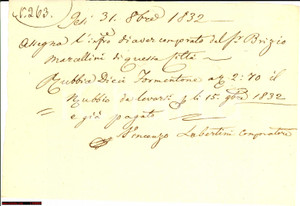 N.° 263.
Jesi 31. 8bre 1832
Assegna l'infro di aver comprato dal Sr Brizio
Marcellini di questa Città
Rubbia Dieci Formentone a 2:70 il
Rubbio da levarsi li 15. 9bre 1832
e già pagato
Vincenzo Lobertini compratore